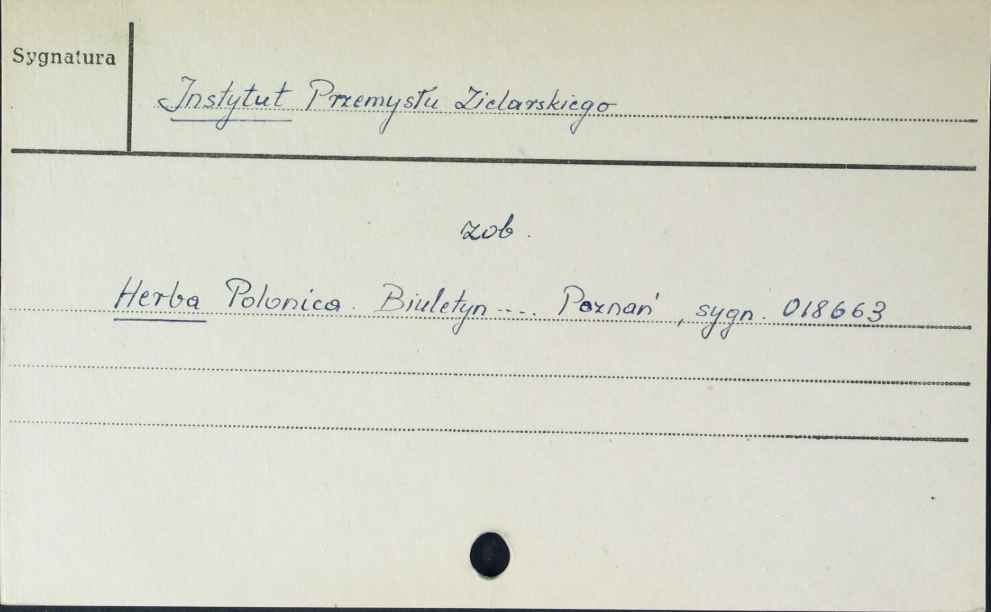 Sygnatura
Instytut Przemysłu Zielarskiego
zob.
Herba Polonica. Biuletyn .... Poznań, sygn. 018663